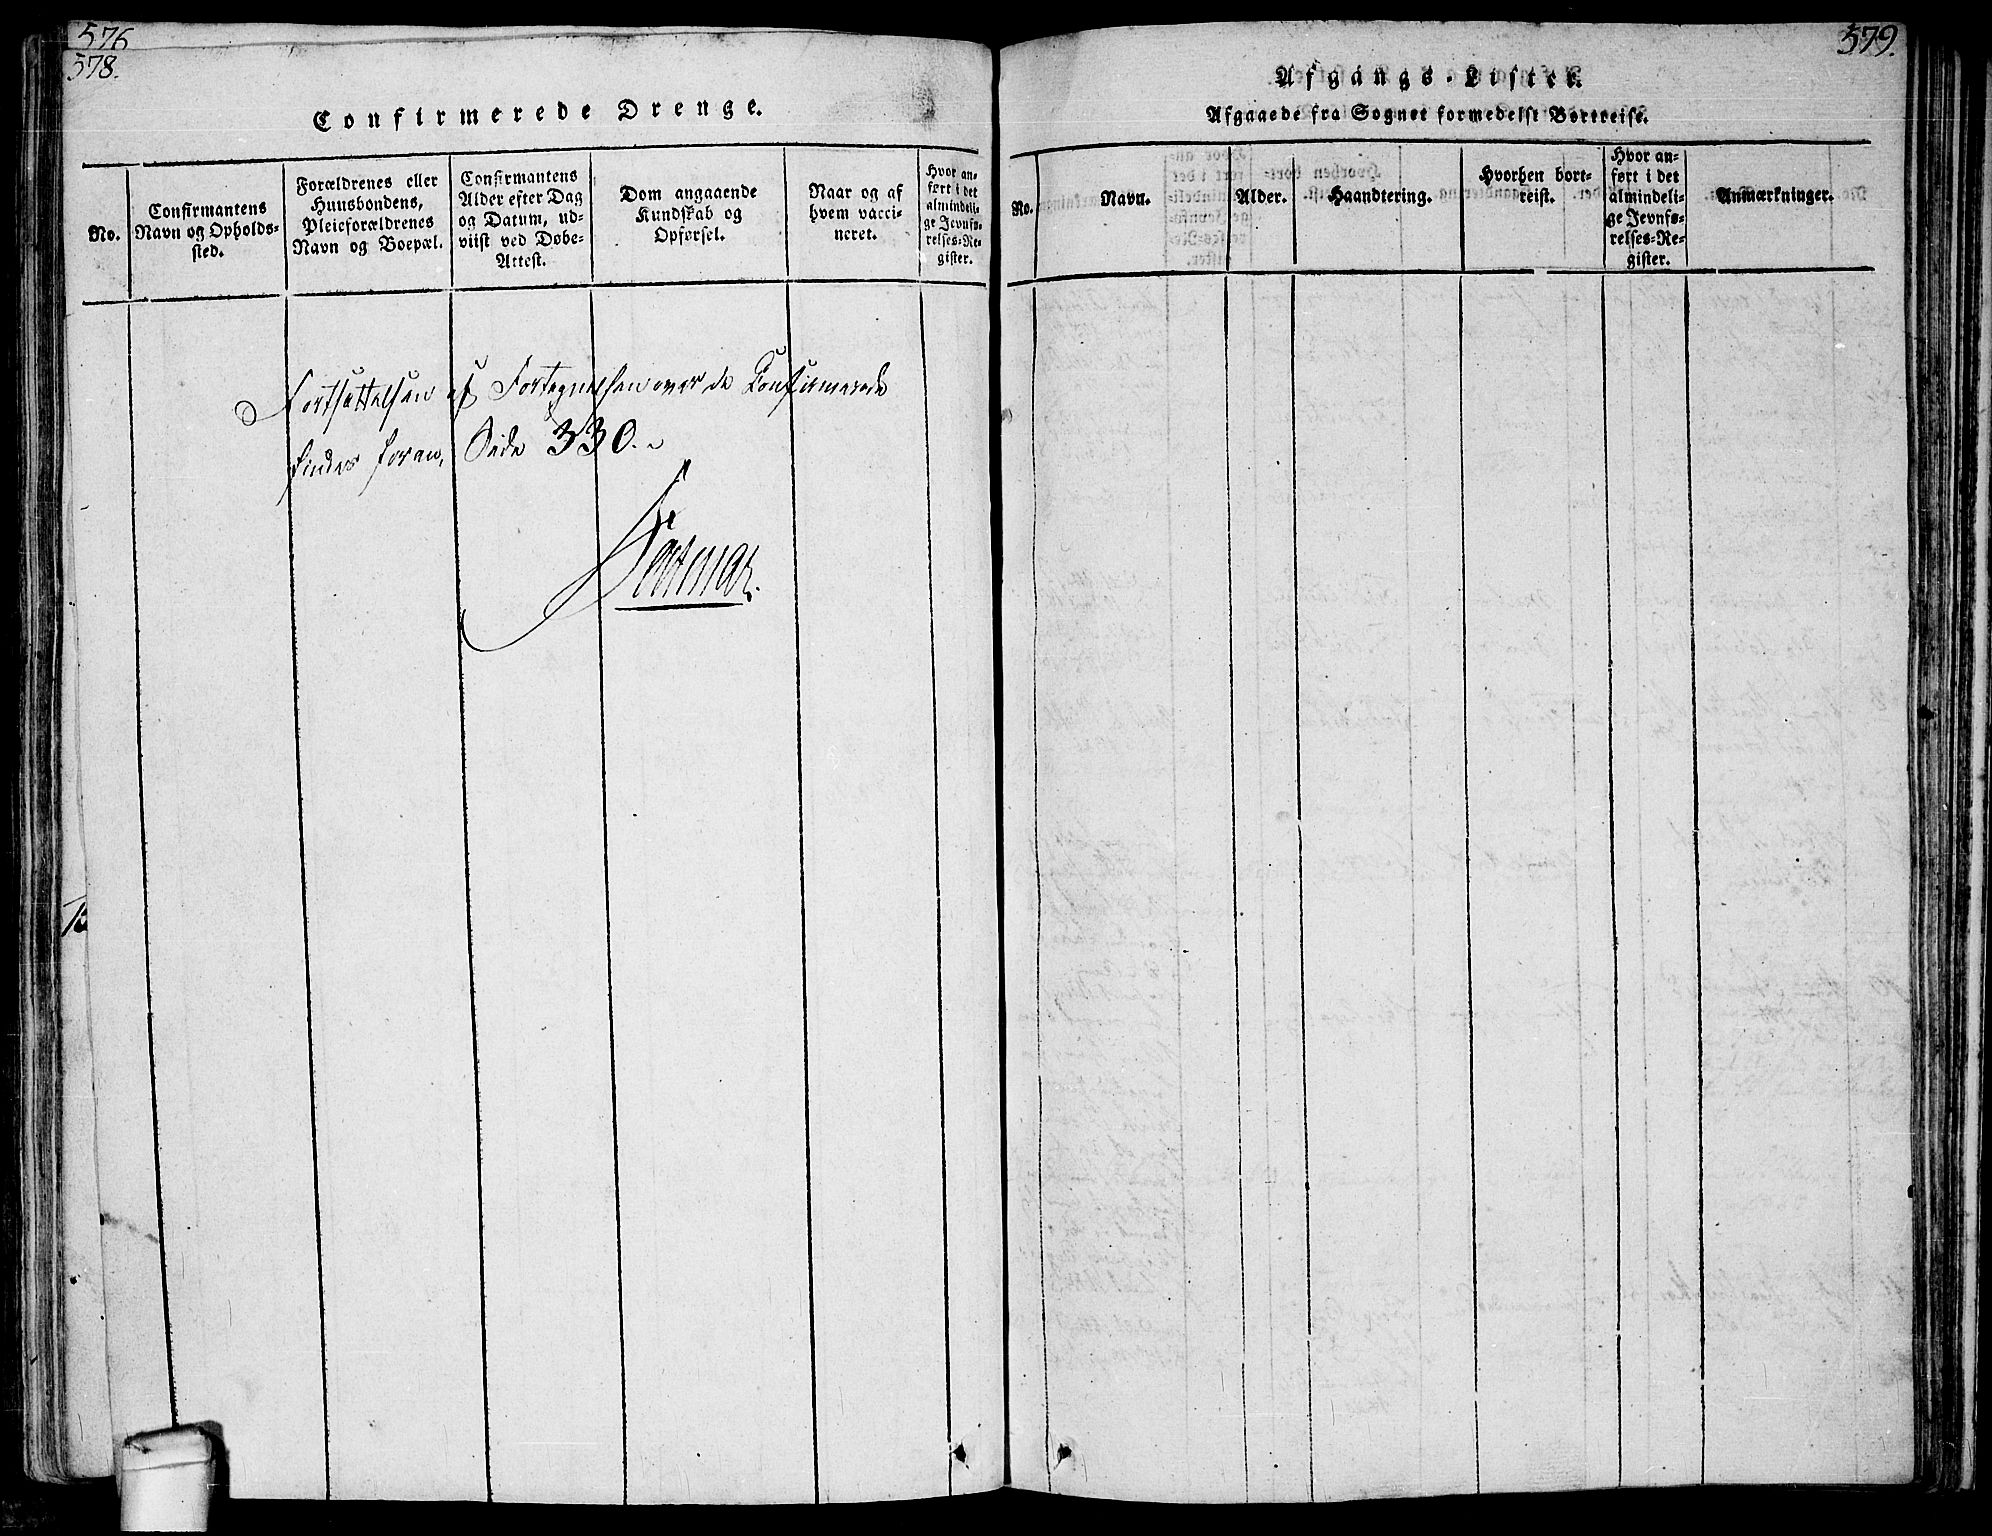 576
578.
Confirmerede Drenge.
No.
Confirmantens
Navn og Opholds-
sted.
Forældrenes eller
Huusbondens,
Pleieforældrenes
Navn og Boepæl.
Confirmantens
Alder efter Dag
og Datum, ud-
viist ved Døbe-
Attest.
Dom angaaende
Kundskab og
Opførsel.
Naar og af
hvem vacci-
neret.
Hvor an-
ført i det
almindeli-
ge Jevnfø-
relses-Re-
gister.
Fortsættelsen af Fortegnelsen over de Confirmerede
findes foran, Side 330.
579.
Afgangs-Lister.
Afgaaede fra Sognet formedelst Bortreise.
No.
Navn.
Alder.
Haandtering.
Hvorhen bort-
reist.
Hvor an-
ført i det
almindeli-
ge Jevnfø-
relses-Re-
gister.
Anmærkninger.